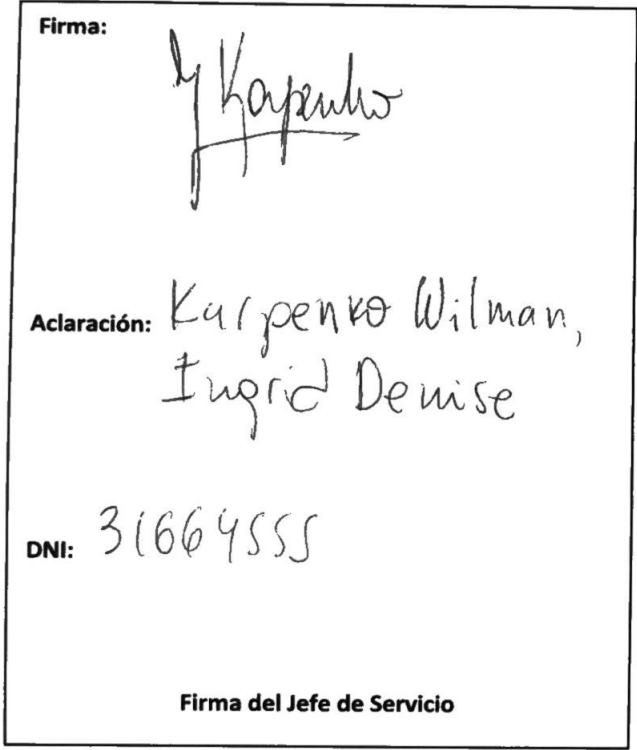 Firma:
Karpenko
Aclaración: Karpenko Wilman,
Ingrid Denise
DNI: 31664555
Firma del Jefe de Servicio